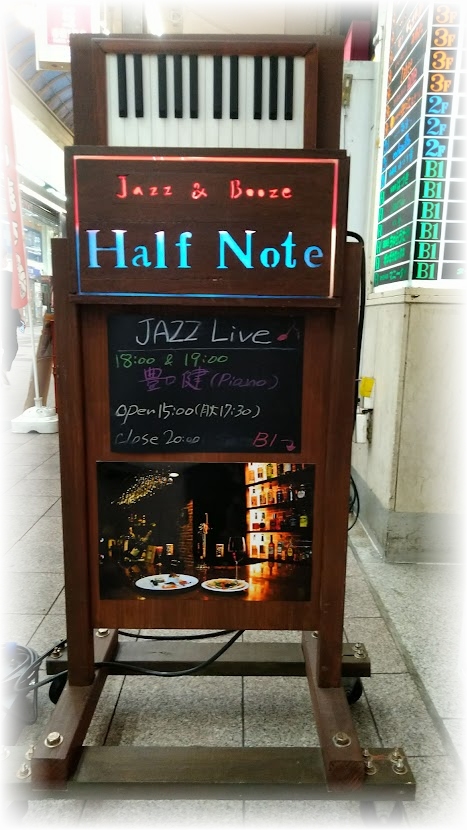 Jazz & Booze
Half Note
JAZZ Live
18:00 & 19:00
豊口 健 (Piano)
open 15:00 (月火 17:30)
close 20:00
B1
3F
3F
3F
3F
2F
2F
2F
B1
B1
B1
B1
B1
B1